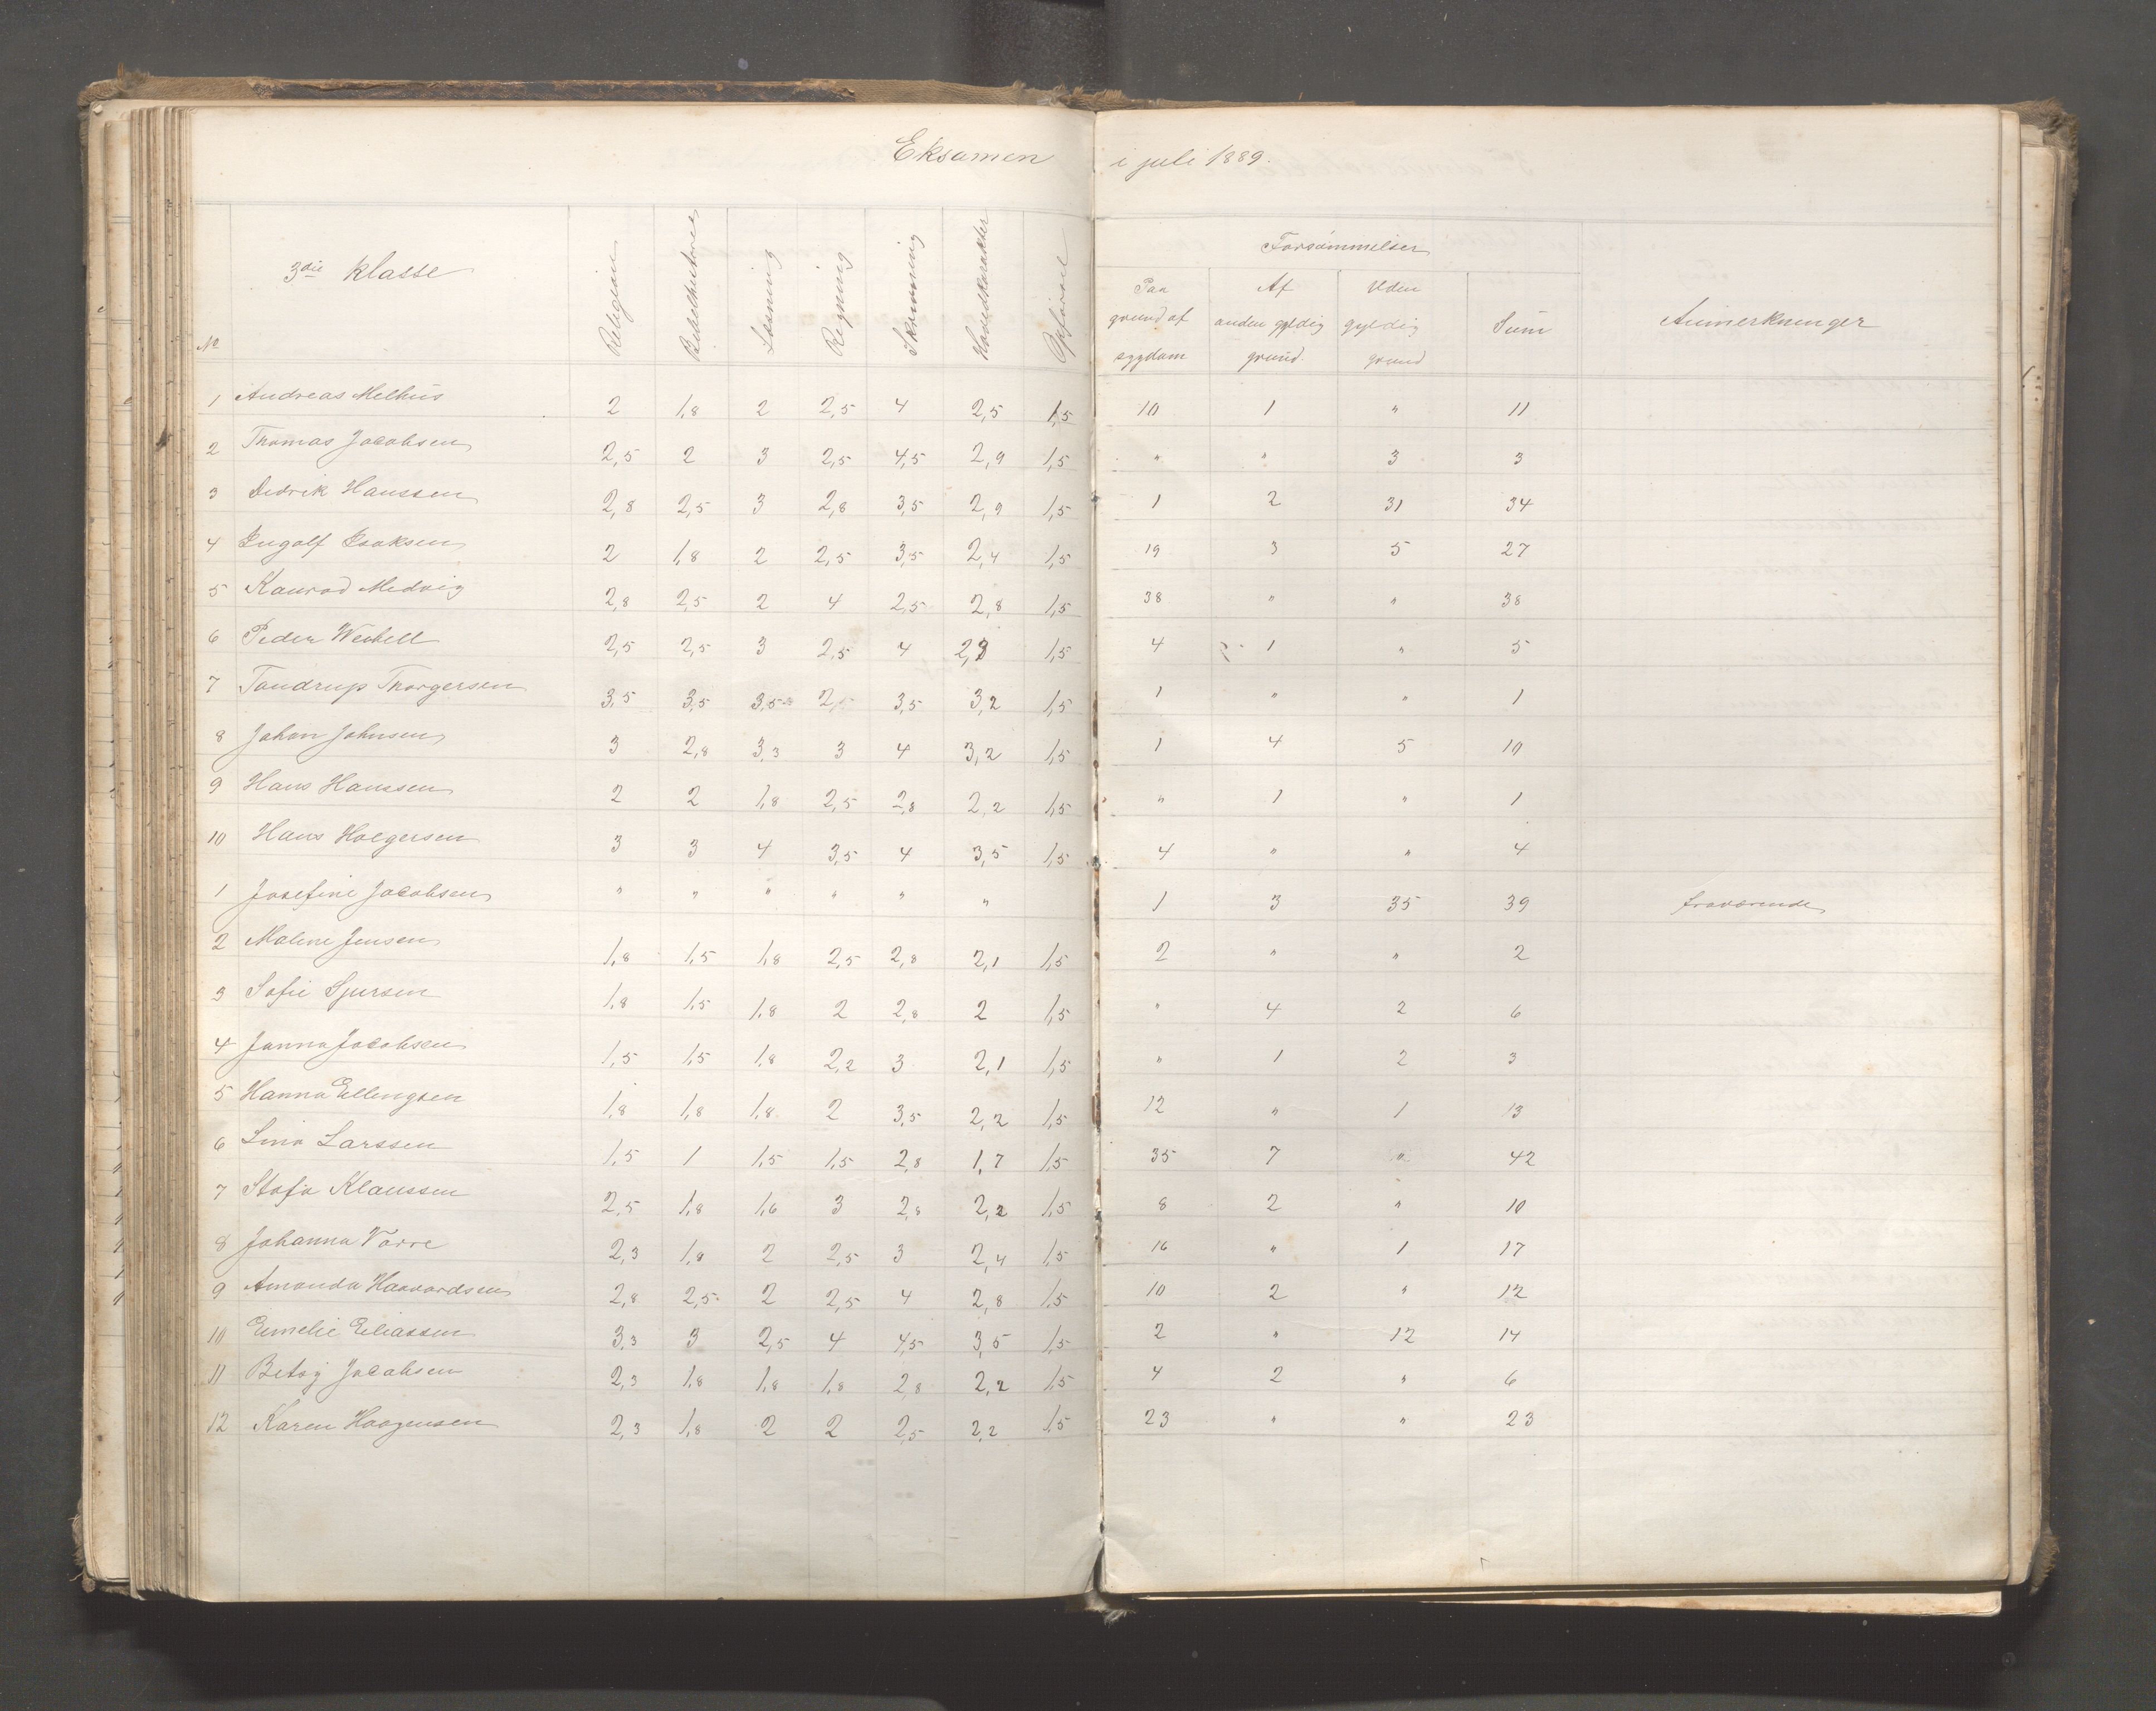 Eksamen i juli 1889.
Forsømmelser
№ 3die klasse Religion Bibelhistorie Læsning Regning Skrivning Hovedkarakter Opførsel Paa grund af sygdom Af anden gyldig grund. Uden gyldig grund Sum Anmerkninger
1 Andreas Melhus 2 1,8 2 2,5 4 2,5 1,5 10 1 " 11
2 Thomas Jacobsen 2,5 2 3 2,5 4,5 2,9 1,5 " " 3 3
3 Didrik Hanssen 2,8 2,5 3 2,8 3,5 2,9 1,5 1 2 31 34
4 Ingolf Isaksen 2 1,8 2 2,5 3,5 2,4 1,5 19 3 5 27
5 Konrad Medvig 2,8 2,5 2 4 2,5 2,8 1,5 38 " " 38
6 Peder 2,5 2,5 3 2,5 4 2,9 1,5 4 1 " 5
7 Tandrup Thorgersen 3,5 3,5 3,5 2,5 3,5 3,2 1,5 1 " " 1
8 Johan Johnsen 3 2,8 3,3 3 4 3,2 1,5 1 4 5 10
9 Hans Hanssen 2 2 1,8 2,5 2,8 2,2 1,5 " 1 " 1
10 Hans Holgersen 3 3 4 3,5 4 3,5 1,5 4 " " 4
1 Josefine Jacobsen " " " " " " 1 3 35 39 fraværende
2 Maline Jensen 1,8 1,5 1,8 2,5 2,8 2,1 1,5 2 " " 2
3 Sofie Sjursen 1,8 1,5 1,8 2 2,8 2 1,5 " 4 2 6
4 Janna Jacobsen 1,5 1,5 1,8 2,2 3 2,1 1,5 " 1 2 3
5 Hanna Ellengsen 1,8 1,8 1,8 2 3,5 2,2 1,5 12 " 1 13
6 Lina Larssen 1,5 1 1,5 1,5 2,8 1,7 1,5 35 7 " 42
7 Klaussen 2,5 1,8 1,6 3 2,8 2,2 1,5 8 2 " 10
8 Johanna Vorre 2,3 1,8 2 2,5 3 2,4 1,5 16 " 1 17
9 Amanda Haavardsen 2,8 2,5 2 2,5 4 2,8 1,5 10 2 " 12
10 Emelie Eliassen 3,3 3 2,5 4 4,5 3,5 1,5 2 " 12 14
11 Betsy Jacobsen 2,3 1,8 1,8 1,8 2,8 2,2 1,5 4 2 " 6
12 Karen Haagensen 2,3 1,8 2 2 2,5 2,2 1,5 23 " " 23